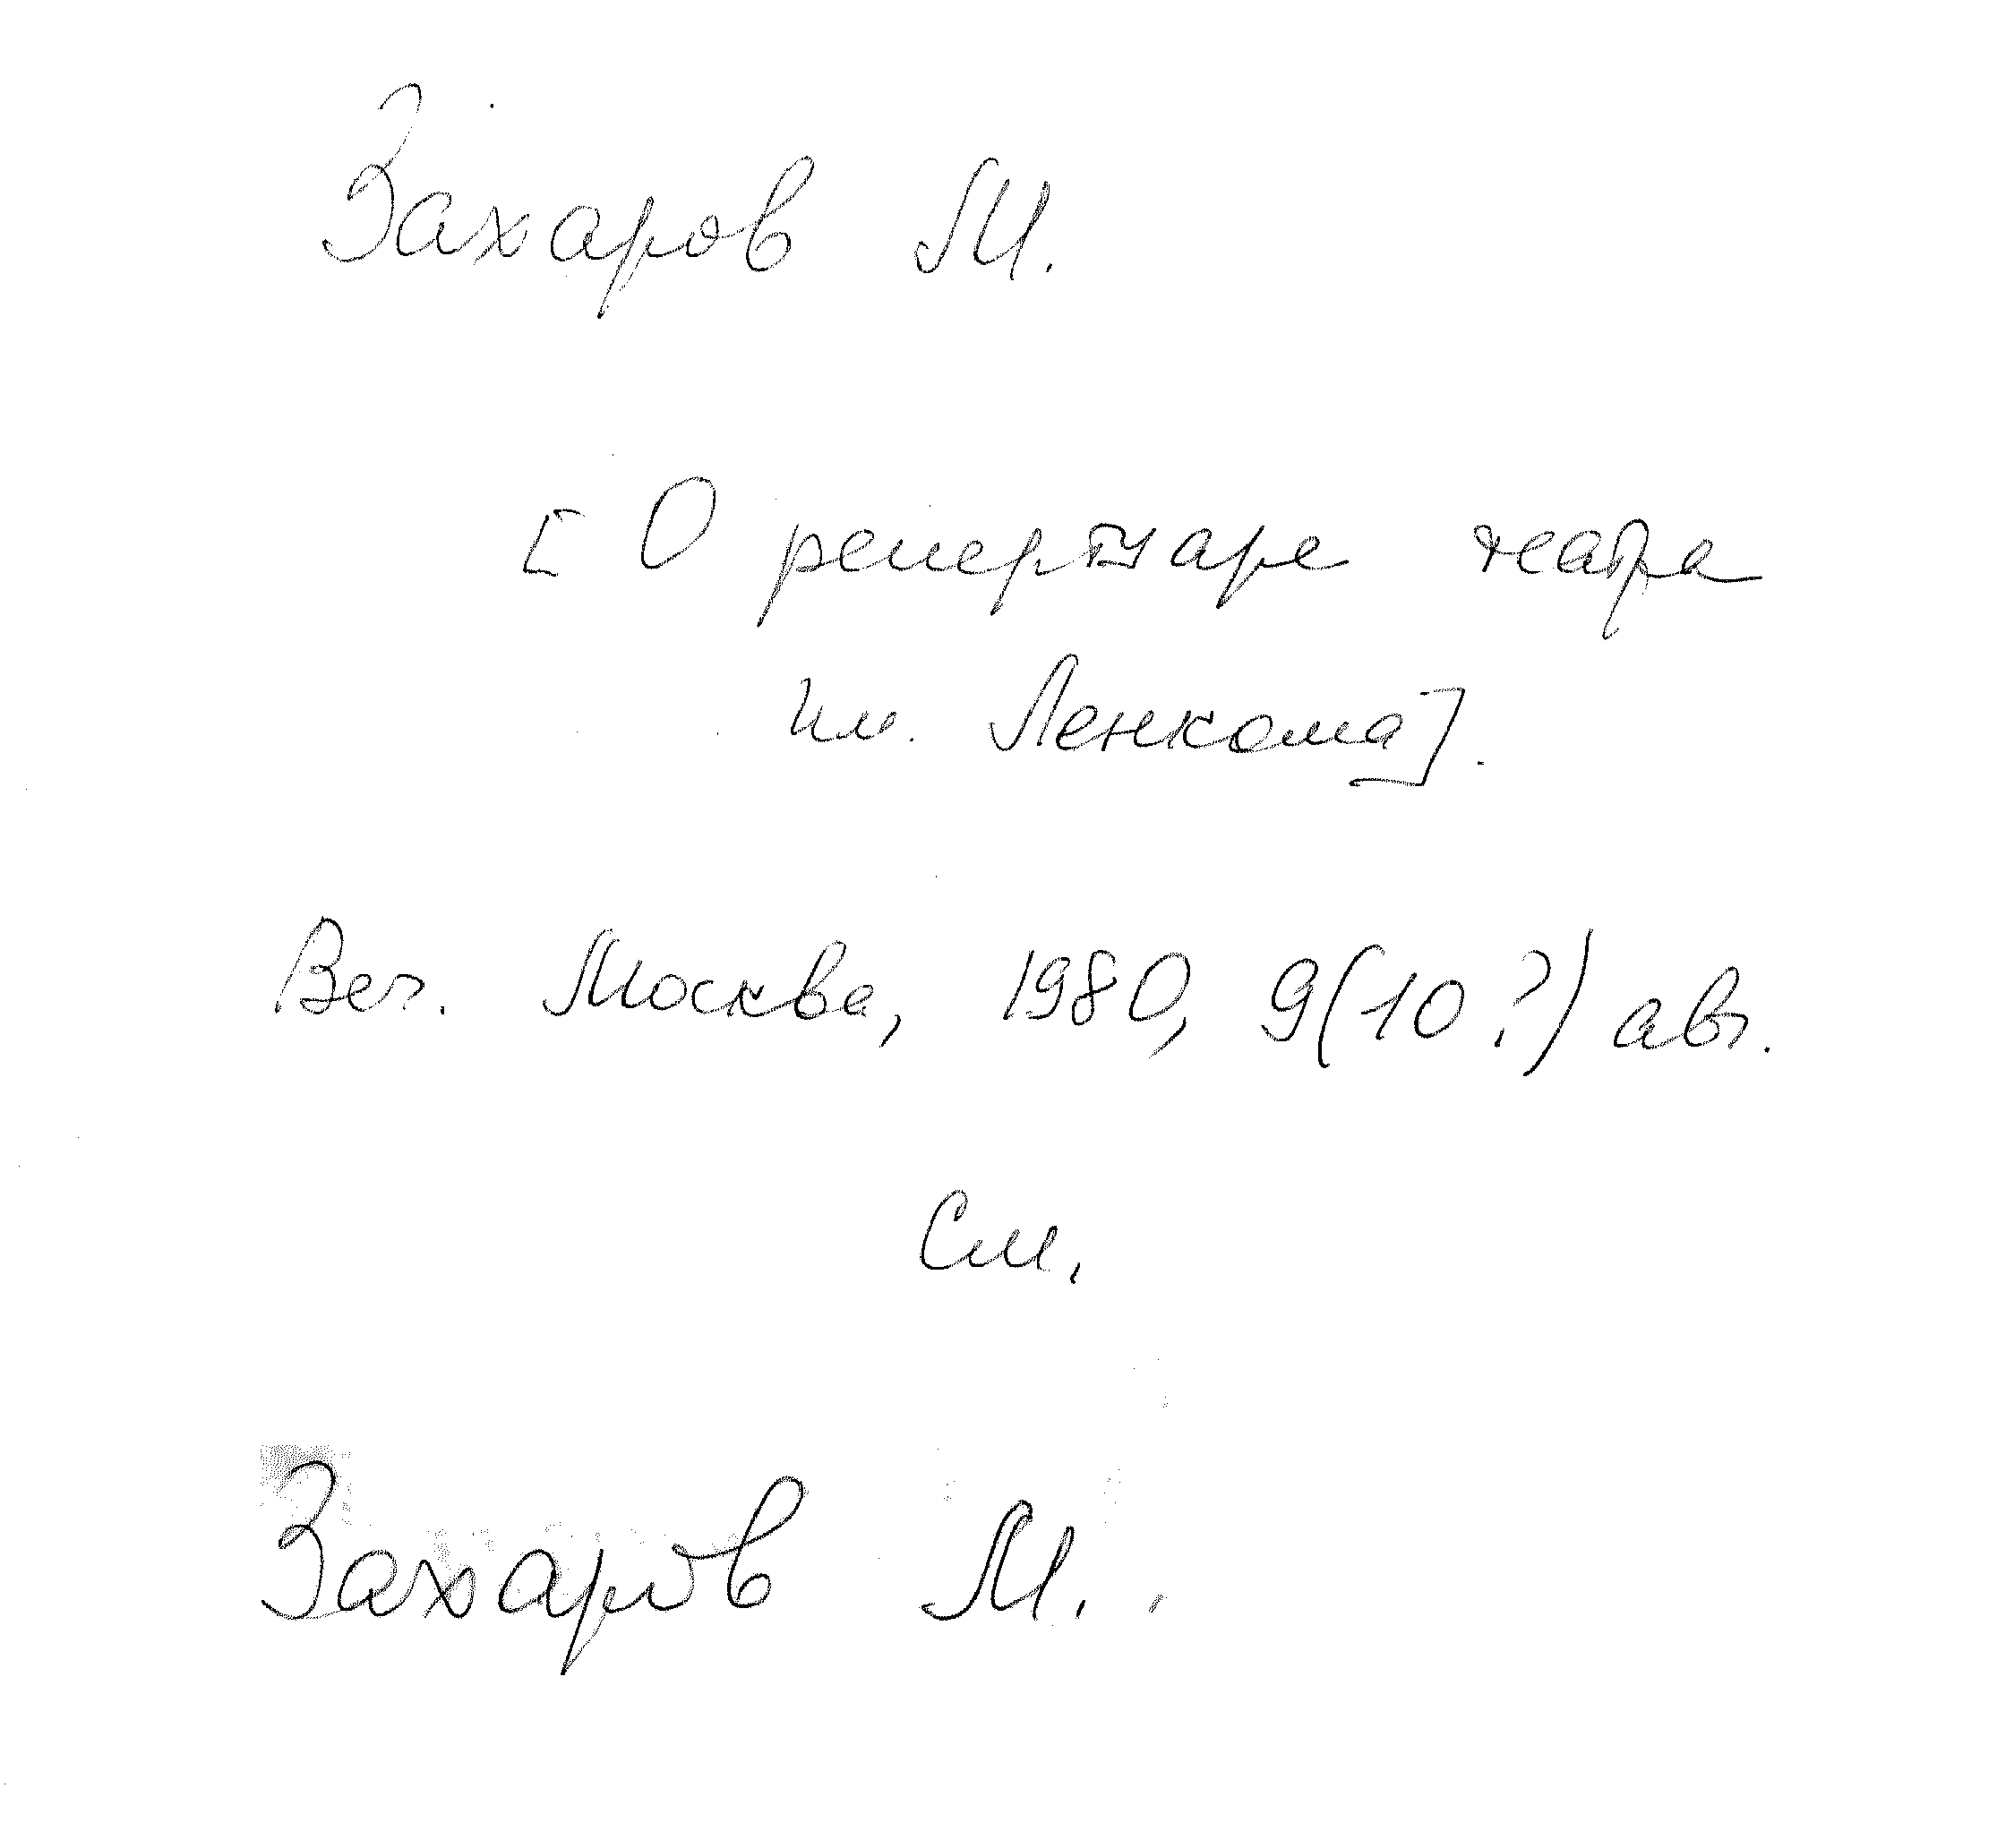 Захаров М.
[О репертуаре театра
им. Ленкома].
Веч. Москва, 1980, 9(10?) авг.
См.
Захаров М.